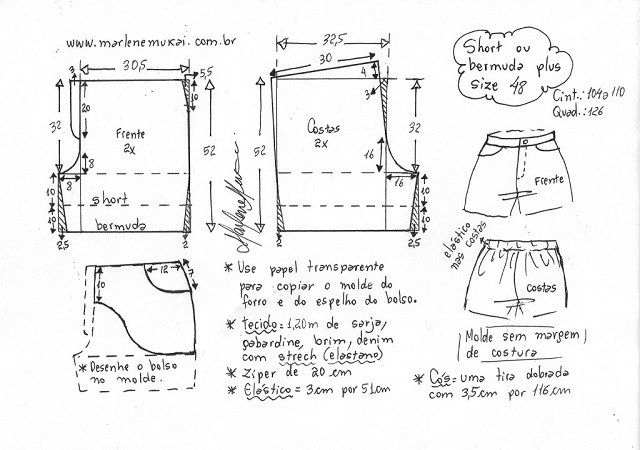 www.marlenemukai.com.br
30,5
5,5
3
20
10
32
Frente
2x
52
8
8
10
short
10
bermuda
2,5
2
Marlene Mukai
32,5
30
4
3
Costas
2x
32
52
16
16
10
10
2
2,5
Short ou
bermuda plus
size 48
Cint.: 104a110
Quad.: 126
Frente
elástico
nas costas
Costas
Molde sem margem
de costura
12
7
10
* Desenhe o bolso
no molde.
* Use papel transparente
para copiar o molde do
forro e do espelho do bolso.
* tecido = 1,20m de sarja,
gabardine, brim, denim
com strech (elastano)
* Ziper de 20 cm
* Elástico = 3cm por 51cm
* Cós = uma tira dobrada
com 3,5cm por 116cm